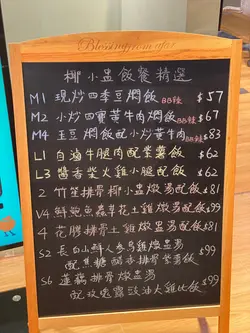 椰小盅飯餐精選
M1 現炒四季豆燜飯 BB辣 $57
M2 小炒四寶黃牛肉燜飯 BB辣 $67
M4 玉豆燜飯配小炒黃牛肉 BB辣 $83
L1 白滷牛腿肉配紫薯飯 $62
L3 醬香柴火雞小腿子飯 $62
2 竹笙排骨椰小盅燉湯配飯 $81
V4 鮮鮑魚蟲草花土雞燉湯配飯 $99
4 花膠排骨土雞燉盅湯配飯 $81
S2 長白小鮮人參烏雞燉盅湯
配焦糖醋香排骨紫薯飯 $99
S6 蓮藕排骨燉盅湯
配玫瑰露豉油大雞比飯 $99